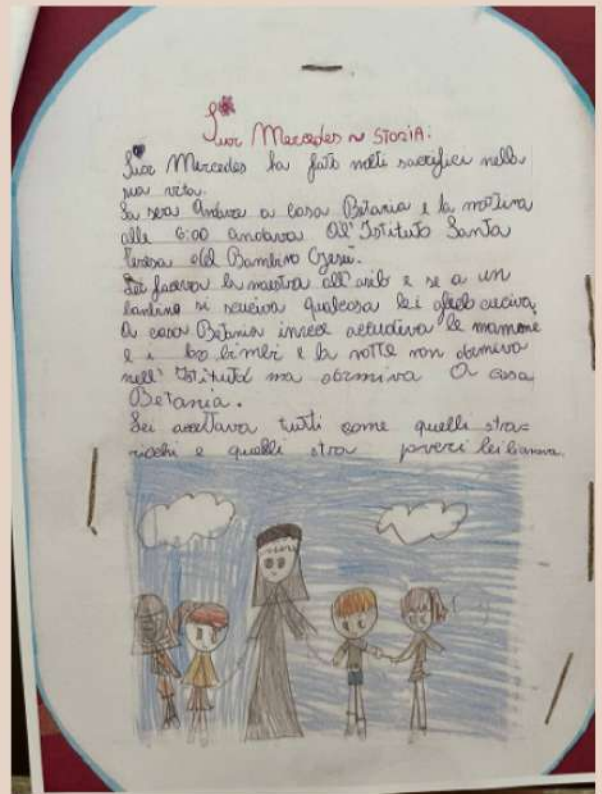 Suor Mercedes ~ STORIA:
Suor Mercedes ha fato molti sacrifici nella
sua vita.
La sera andava a casa Betania e la mattina
alle 6:00 andava all'Istituto Santa
Teresa del Bambino Gesù.
Lei faceva la maestra all'asilo e se a un
bambino si scuciva qualcosa lei glielo cuciva,
a casa Betania invece accudiva le mamme
e i loro bimbi e la notte non dormiva
nell'Istituto ma dormiva a casa
Betania.
Lei accettava tutti come quelli stra=
ricchi e quelli stra poveri lei